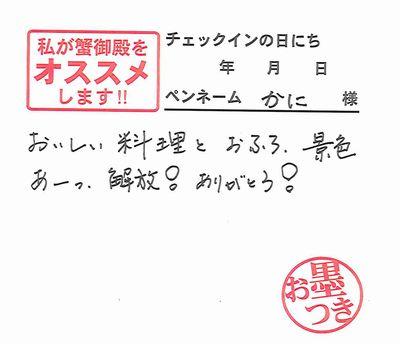 私が蟹御殿を
オススメ
します!!
チェックインの日にち
年 月 日
ペンネーム かに 様
おいしい 料理と おふろ、景色
あーっ、解放! ありがとう!
お墨
つき